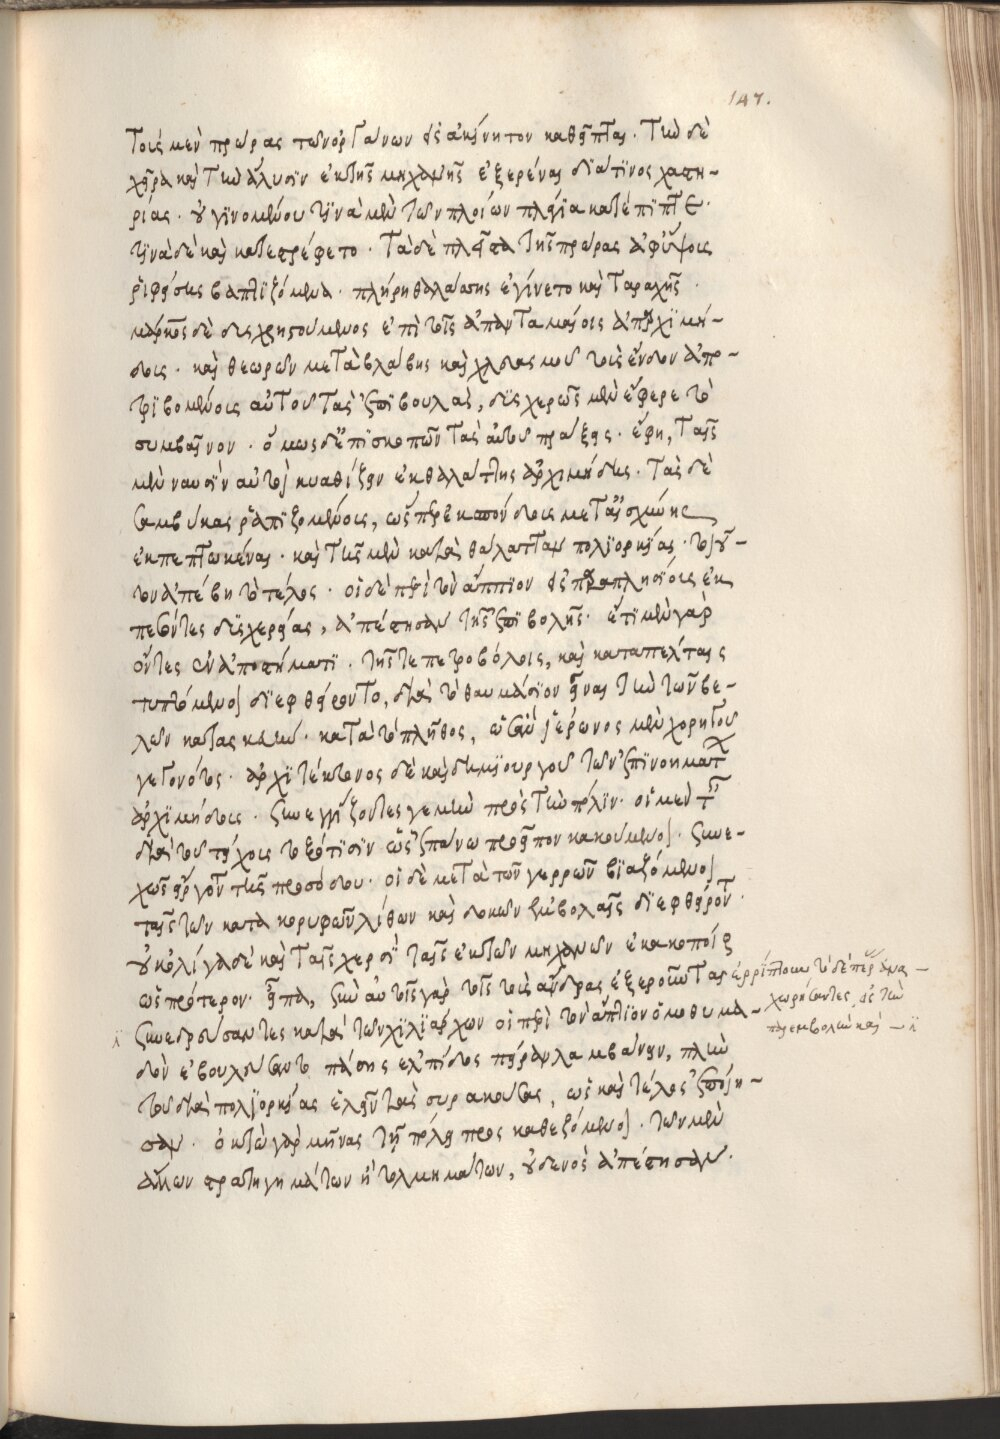 147.
τοὺς μὲν πρώρας τῶν ὀργάνων εἰς ἀκίνητον καθῆπται. τὴν δὲ
χεῖρα καὶ τὴν ἅλυσιν ἐκ τῆς μηχανῆς ἐξερένας διά τινος χαστη-
ρίας. οὗ γινομένου τινὰ μὲν τῶν πλοίων πλάγια κατέπιπτε.
τινὰ δὲ καὶ κατεστρέφετο. τὰ δὲ πλεῖστα τῆς πρώρας ἀφ' ὕψους
ῥιφείσης βαπτιζόμενα. πλήρη θαλάσσης ἐγίνετο καὶ ταραχῆς.
μάρκος δὲ δυσχρηστούμενος ἐπὶ τοῖς ἀπαντωμένοις ὑπ' ἀρχιμή-
δους. καὶ θεωρῶν μετὰ βλάβης καὶ χλευασμοῦ τοὺς ἔνδον ἀπο-
τριβομένους αὐτοῦ τὰς ἐπιβουλὰς, δυσχερῶς μὲν ἔφερε τὸ
συμβαῖνον. ὅμως δ' ἐπισκοπῶν τὰς αὐτοῦ πράξεις. ἔφη, ταῖς
μὲν ναυσὶν αὐτοῦ κυαθίζειν ἐκ θαλάττης ἀρχιμήδης. τὰς δὲ
σαμβύκας ῥαπιζομένους, ὥσπερ ἐκσπόνδους μετ' αἰσχύνης
ἐκπεπτωκέναι. καὶ τῆς μὲν κατὰ θάλατταν πολιορκίας. τοιοῦ-
τον ἀπέβη τὸ τέλος. οἱ δὲ περὶ τὸν ἄππιον εἰς παραπλησίους ἐκ
πεσόντες δυσχερείας, ἀπέστησαν τῆς ἐπιβολῆς. ἔτι μὲν γὰρ
ὄντες ἐν ἀποστήματι. τῆς τε πετροβόλοις, καὶ καταπέλταις
τυπτόμενοι διεφθείροντο, διὰ τὸ θαυμάσιον εἶναι τὴν τῶν βε-
λῶν κατασκευήν. κατὰ τὸ πλῆθος, ὡσὰν ἱέρωνος μὲν χορηγοῦ
γεγονότος. ἀρχιτέκτονος δὲ καὶ δημιουργοῦ τῶν ἐπινοημάτων
ἀρχιμήδους. συνεγγίζοντές γε μὴν πρὸς τὴν πόλιν. οἱ μὲν ταῖς
διὰ τοῦ τείχους τοξότισιν ὡς ἐπάνω προεῖπον κακούμενοι. συνε-
χῶς εἴργοντο τῆς προσόδου. οἱ δὲ μετὰ τῶν γέρρων βιαζόμενοι
ταῖς τῶν κατὰ κορυφὴν λίθων καὶ δοκῶν ἐμβολαῖς διεφθείροντο.
οὐκ ὀλίγα δὲ καὶ ταῖς χερσὶ ταῖς ἐκ τῶν μηχανῶν ἐκακοποίουν
ὡς πρότερον εἶπα, σὺν αὐτοῖς γὰρ τοῖς τοὺς ἄνδρας ἐξεροῦντας ἐρρίπτουν. τὸ δὲ πέρας ἀνα-
χωρήσαντες εἰς τὴν
παρεμβολὴν καὶ
συνεδρεύσαντες κατὰ τῶν χιλιάρχων οἱ περὶ τὸν ἄππιον ὁμοθυμα-
δὸν ἐβουλεύσαντο πάσης ἐλπίδος πεῖραν λαμβάνειν, πλὴν
τοῦ διὰ πολιορκίας ἑλεῖν τὰς συρακούσας, ὡς καὶ τέλος ἐποίη-
σαν. ὀκτὼ γὰρ μῆνας τῇ πόλει προσκαθεζόμενοι. τῶν μὲν
ἄλλων στρατηγημάτων ἢ τολμημάτων, οὐδενὸς ἀπέστησαν.